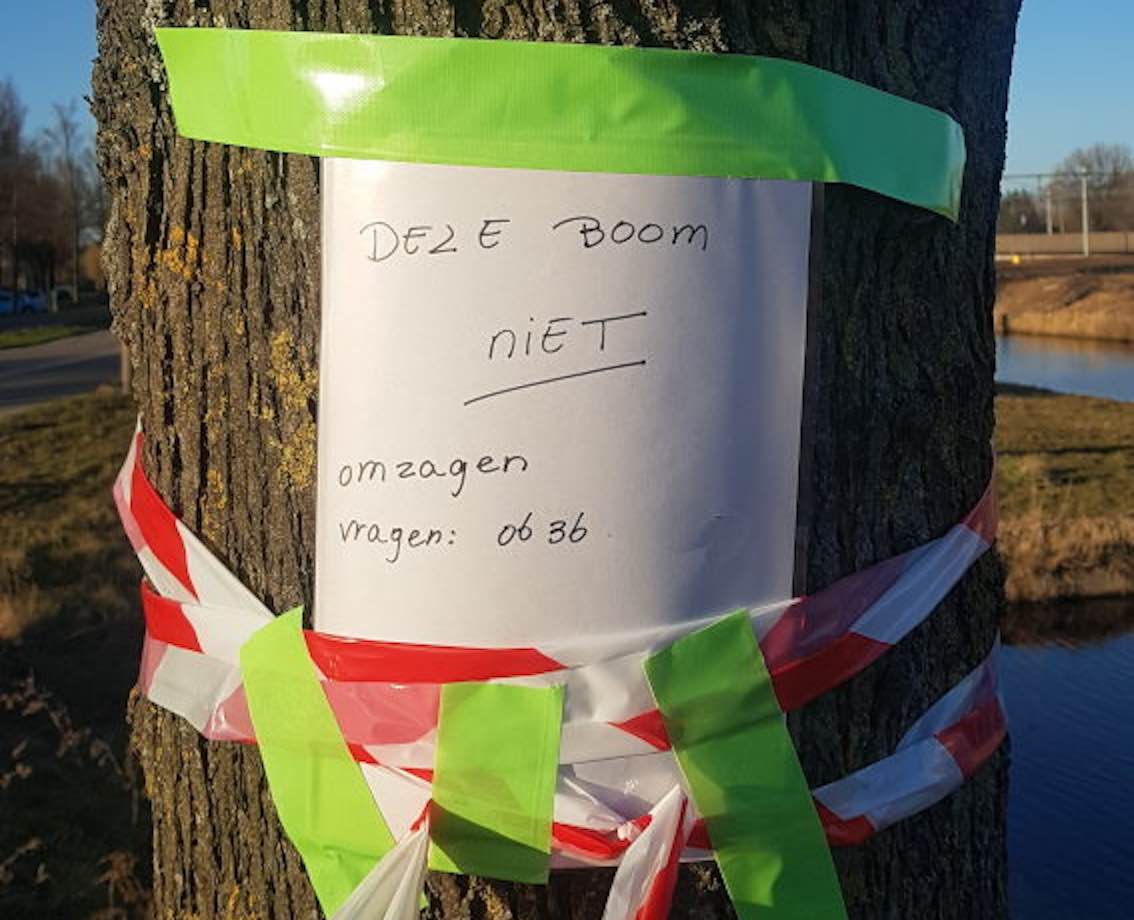 DEZE BOOM
niET
omzagen
vragen: 06 36